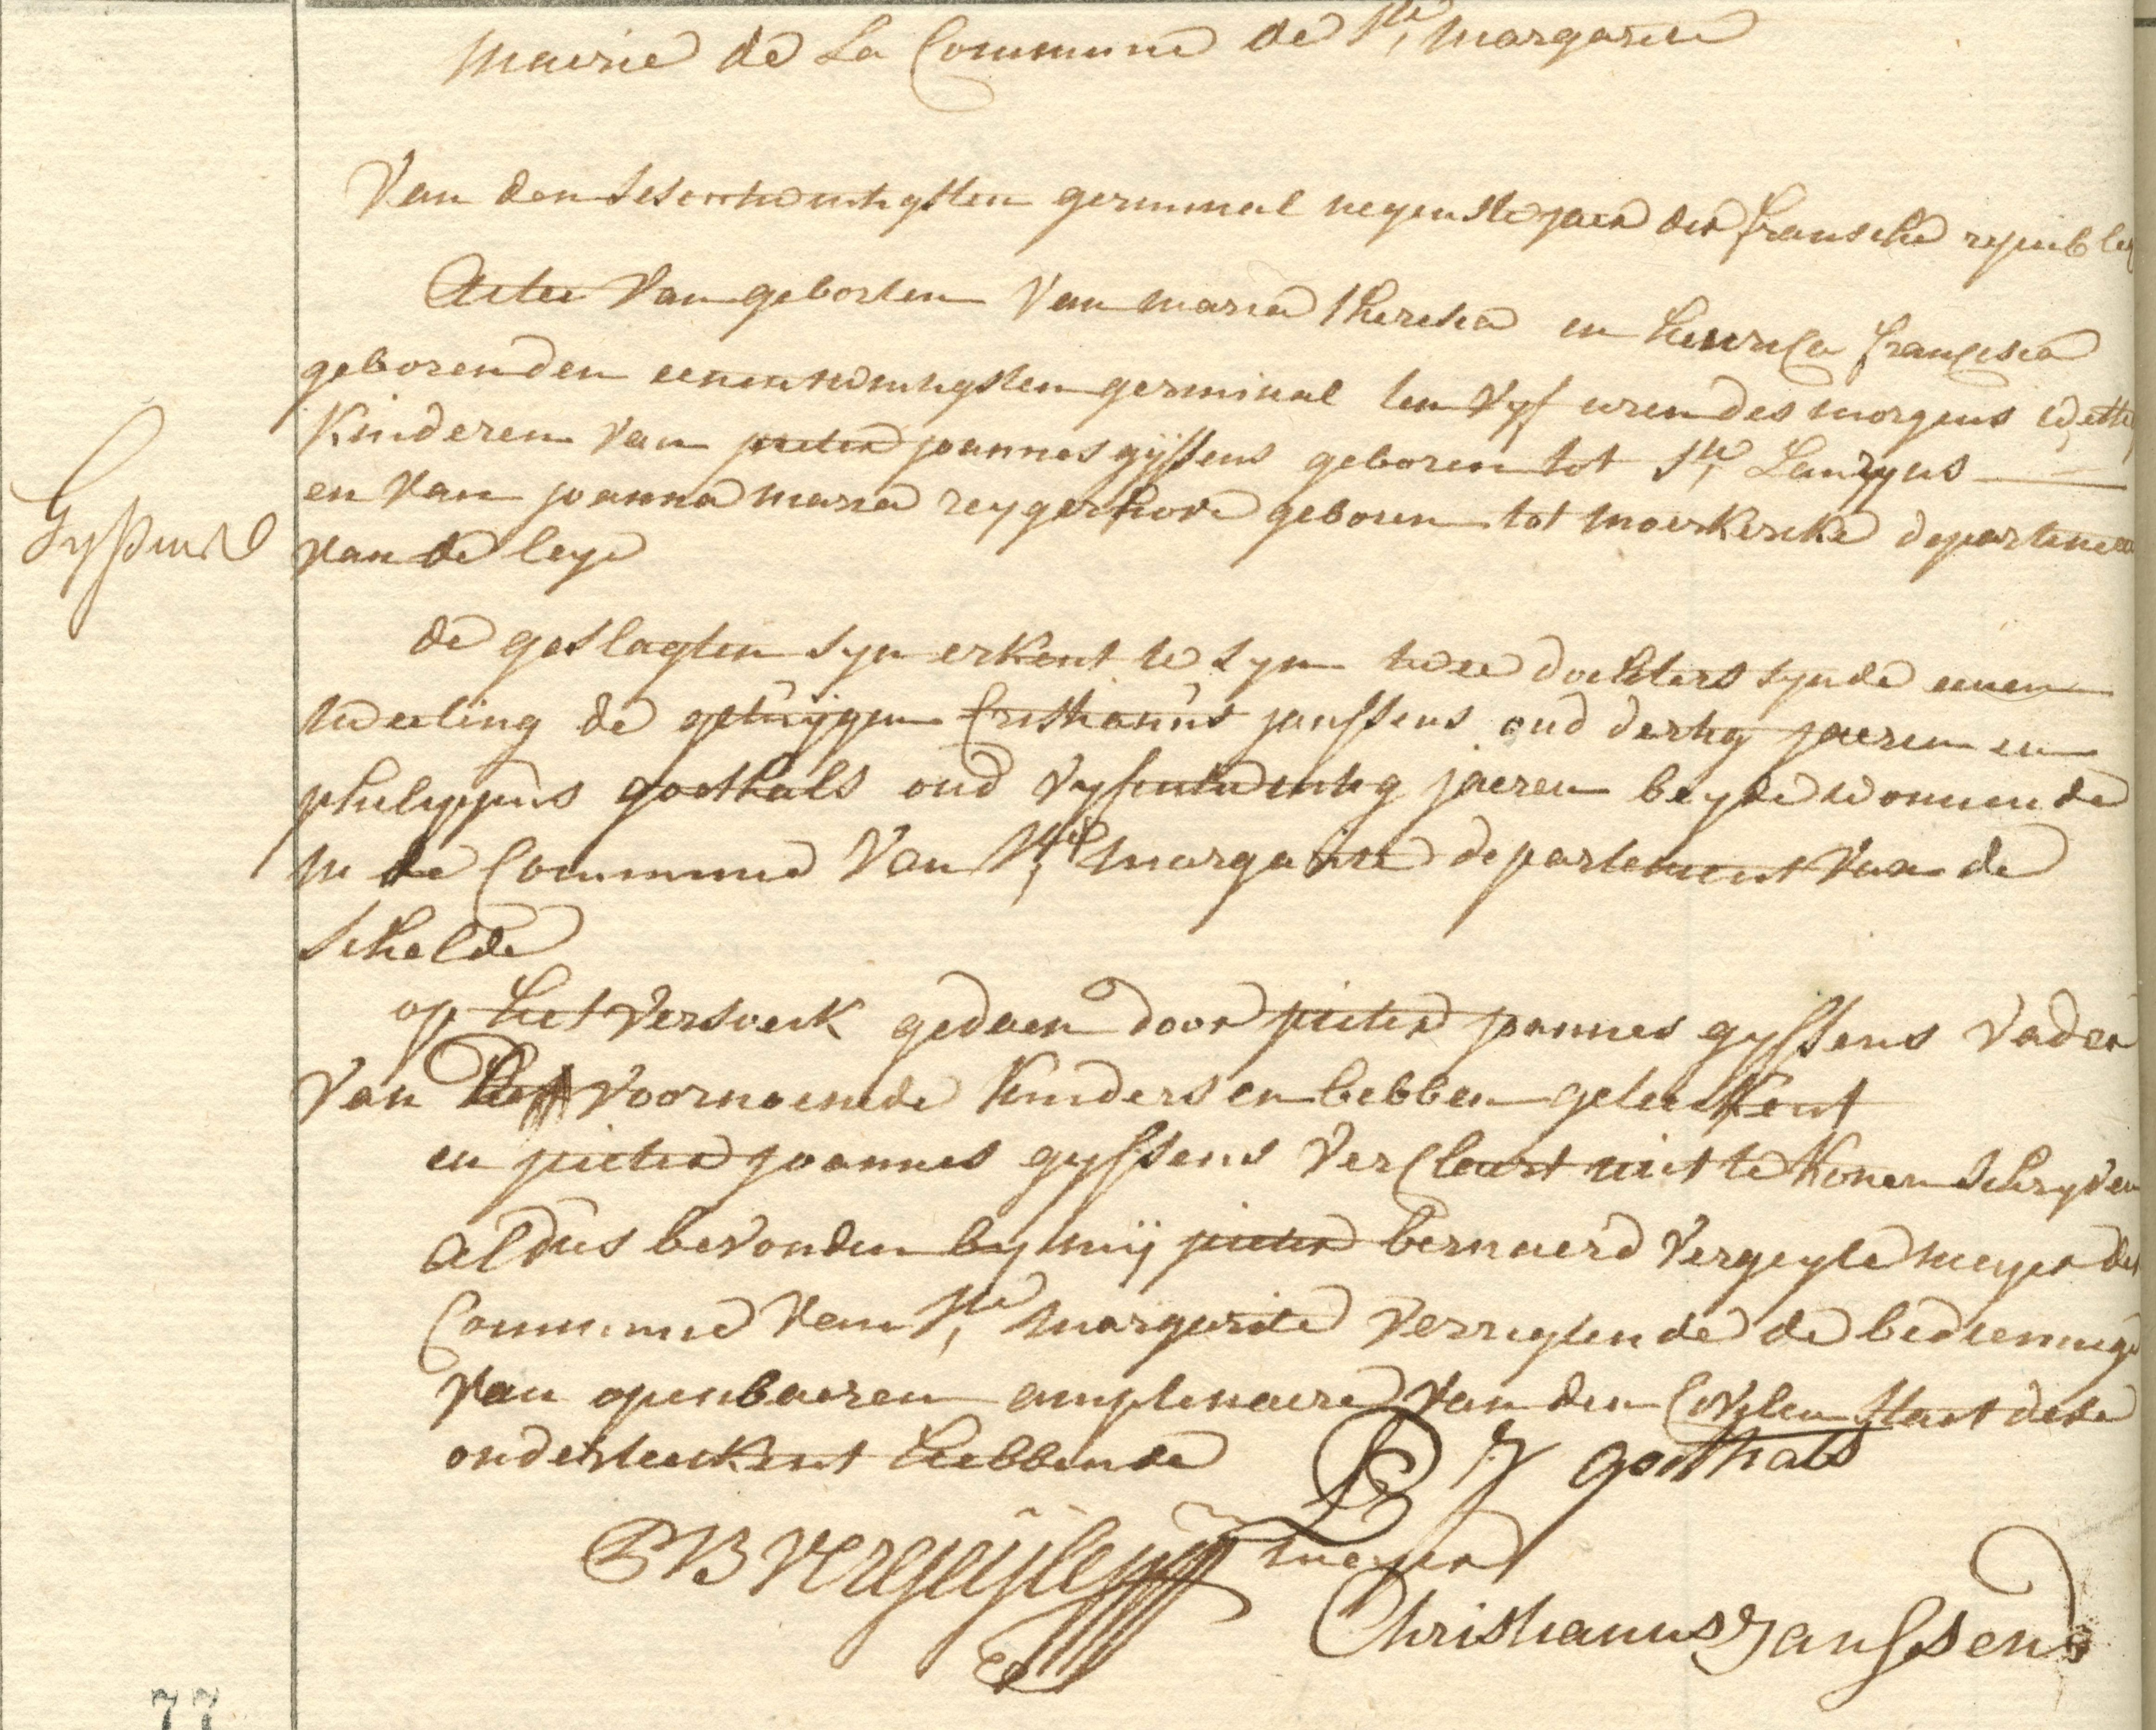 Mairie de La Commune de Ste Margarite
Van den sesentwintigsten germinal negenste jaer der fransche republ
Actee van geborten van maria theresia en henrica francisca
geboren den eenentwintigsten germinal ten vyf uren des morgens wetti
Kinderen van pieter joannes gyssens geboren tot Ste Laureyns
Gyssens
en van joanna maria reygerhove geboren tot moerkercke departemen
van de leye
de geslagten syn erkent te syn twee dochters synde eenen
tweeling de getuÿgen Cristianus janssens oud dertig jaeren en
philippus goethals oud vyfentwintig jaeren beyde wonnende
in de Commune van Ste margarite departement van de
schelde
op het versoeck gedaen door pieter joannes gyssens vader
van voornoemde kinders en hebben geteekent
en pieter joannes gyssens verclaert niet te konen schryven
aldus bevonden by mÿ pieter bernaerd Vergeyle meyer der
Commune van Ste margarite verrigtende de bedieninge
van openbaeren amptenaere van den Civilen staet dese
onderteekent hebbende
J goethals
PB Vergeÿle meyer
Christianus Janssens
77